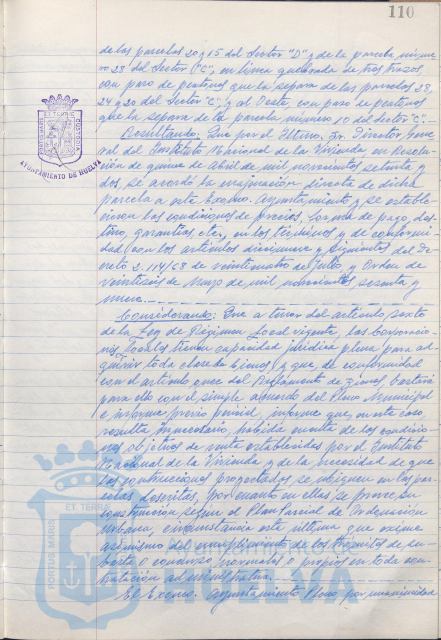 110
de las parcelas 20 y 15 del Sector "D" y de la parcela núme-
ro 28 del Sector "C", en línea quebrada de tres trazos,
con paso de peatones que la separa de las parcelas 28,
24 y 20 del Sector "C"; y al Oeste, con paso de peatones
que la separa de la parcela número 10 del Sector "C".-
Resultando: Que por el Iltmo. Sr. Director Gene-
ral del Instituto Nacional de la Vivienda en Resolu-
ción de quince de Abril de mil novecientos setenta y
dos, se acordó la enajenación directa de dicha
parcela a este Excmo. Ayuntamiento y se estable-
cieron las condiciones de precios, forma de pago, des-
tino, garantías etc., en los términos y de conformi-
dad con los artículos diecinueve y siguientes del De-
creto 2.114/68 de veinticuatro de Julio, y Orden de
veintiseis de Mayo de mil novecientos sesenta y
nueve.
Considerando: Que a tenor del artículo sexto
de la Ley de Régimen Local vigente, las Corporacio-
nes Locales tienen capacidad jurídica plena para ad-
quirir toda clase de bienes y que, de conformidad
con el artículo once del Reglamento de Bienes, bastará
para ello con el simple acuerdo del Pleno Municipal
e informe previo pericial, informe que, en este caso,
resulta innecesario, habida cuenta de las condicio-
nes objetivas de venta establecidas por el Instituto
Nacional de la Vivienda y de la necesidad de que
las construcciones proyectadas se ubiquen en las par-
celas descritas, por cuanto en ellas se prevee su
construcción según el Plan Parcial de Ordenación
Urbana, circunstancia esta última que exime
asimismo del cumplimiento de los trámites de su-
basta o concurso normales o propios en toda con-
tratación administrativa.
El Excmo. Ayuntamiento Pleno, por unanimidad
PORTUS MARIS ET TERRAE CUSTODIA
AYUNTAMIENTO DE HUELVA
PORTUS MARIS ET TERRAE
Ayuntamiento
HUELVA